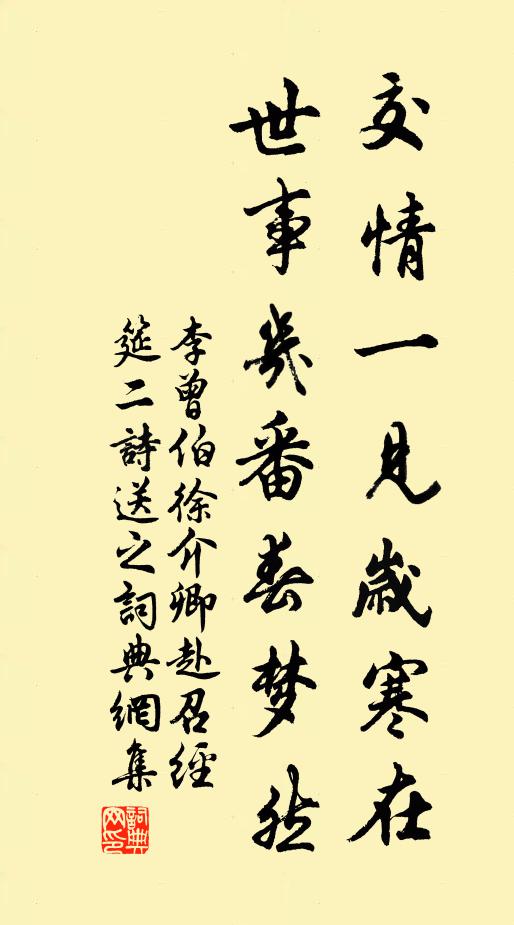 交情一見歲寒在
世事幾番春梦然
李曾伯徐介卿赴召經
筵二詩送之詞典網集
詞典
网印